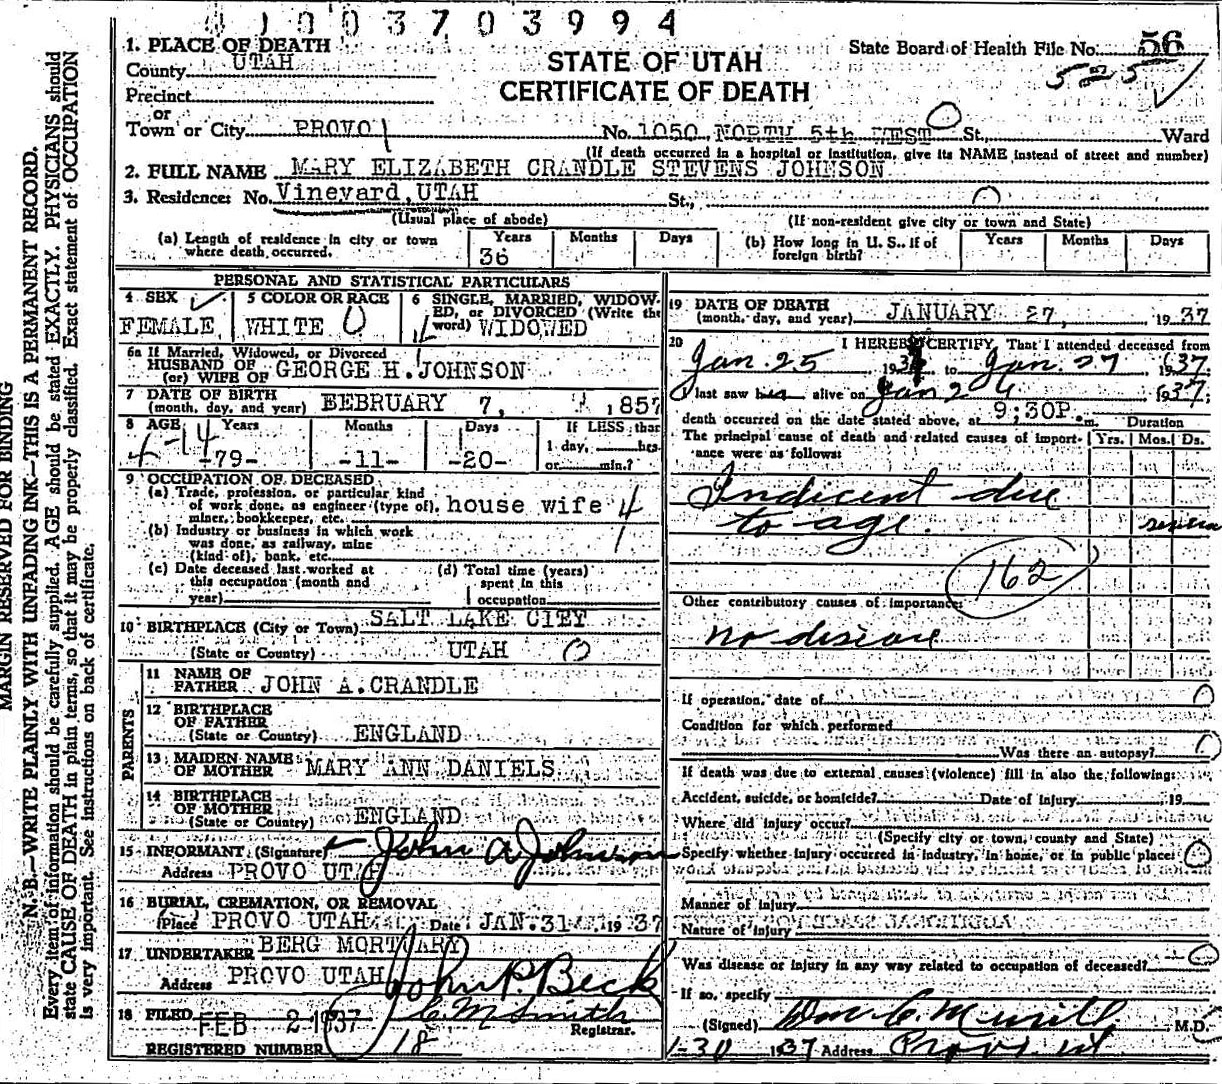 0 1 0 0 3 7 0 3 9 9 4
STATE OF UTAH
CERTIFICATE OF DEATH
State Board of Health File No. 56
1. PLACE OF DEATH
County UTAH
Precinct
or
Town or City PROVO No. 1050 NORTH 5th WEST St., Ward
(If death occurred in a hospital or institution, give its NAME instead of street and number)
2. FULL NAME MARY ELIZABETH CRANDLE STEVENS JOHNSON
3. Residence: No. Vineyard, UTAH St.,
(Usual place of abode) (If non-resident give city or town and State)
(a) Length of residence in city or town where death occurred. Years 36 Months Days
(b) How long in U. S., if of foreign birth? Years Months Days
PERSONAL AND STATISTICAL PARTICULARS
4 SEX FEMALE
5 COLOR OR RACE WHITE
6 SINGLE, MARRIED, WIDOWED, or DIVORCED (Write the word) WIDOWED
6a If Married, Widowed, or Divorced
HUSBAND OF
(or) WIFE OF GEORGE H. JOHNSON
7 DATE OF BIRTH
(month, day, and year) FEBRUARY 7, 1857
8 AGE Years Months Days If LESS than
1 day, hrs.
-79- -11- -20- or min.?
9 OCCUPATION OF DECEASED
(a) Trade, profession, or particular kind
of work done, as engineer (type of), house wife
miner, bookkeeper, etc.
(b) Industry or business in which work
was done, as railway, mine
(kind of), bank, etc.
(c) Date deceased last worked at
this occupation (month and
year)
(d) Total time (years)
spent in this
occupation
10 BIRTHPLACE (City or Town) SALT LAKE CITY
(State or Country) UTAH
PARENTS
11 NAME OF
FATHER JOHN A. CRANDLE
12 BIRTHPLACE
OF FATHER
(State or Country) ENGLAND
13 MAIDEN NAME
OF MOTHER MARY ANN DANIELS
14 BIRTHPLACE
OF MOTHER
(State or Country) ENGLAND
15 INFORMANT (Signature) John A Johnson
Address PROVO UTAH
16 BURIAL, CREMATION, OR REMOVAL
Place PROVO UTAH Date JAN. 31 19 37
17 UNDERTAKER BERG MORTUARY
Address PROVO UTAH John P. Beck
18 FILED FEB 2 1937 C M Smith
Registrar.
REGISTERED NUMBER 18
19 DATE OF DEATH
(month, day, and year) JANUARY 27, 1937
20 I HEREBY CERTIFY, That I attended deceased from
Jan. 25 1937 to Jan. 27 1937
I last saw her alive on Jan 26 1937;
death occurred on the date stated above, at 9:30P. m.
The principal cause of death and related causes of importance were as follows:
Duration
Yrs. Mos. Ds.
Indicent due
to age.
162
Other contributory causes of importance:
no disease
If operation, date of
Condition for which performed
Was there an autopsy?
If death was due to external causes (violence) fill in also the following:
Accident, suicide, or homicide? Date of injury 19
Where did injury occur?
(Specify city or town, county and State)
Specify whether injury occurred in industry, in home, or in public place:
Manner of injury
Nature of injury
Was disease or injury in any way related to occupation of deceased?
If so, specify
(Signed) M.D.
1-30 1937 Address Provo ut.
MARGIN RESERVED FOR BINDING
N. B.—WRITE PLAINLY WITH UNFADING INK—THIS IS A PERMANENT RECORD.
Every item of information should be carefully supplied. AGE should be stated EXACTLY. PHYSICIANS should
state CAUSE OF DEATH in plain terms, so that it may be properly classified. Exact statement of OCCUPATION
is very important. See instructions on back of certificate.